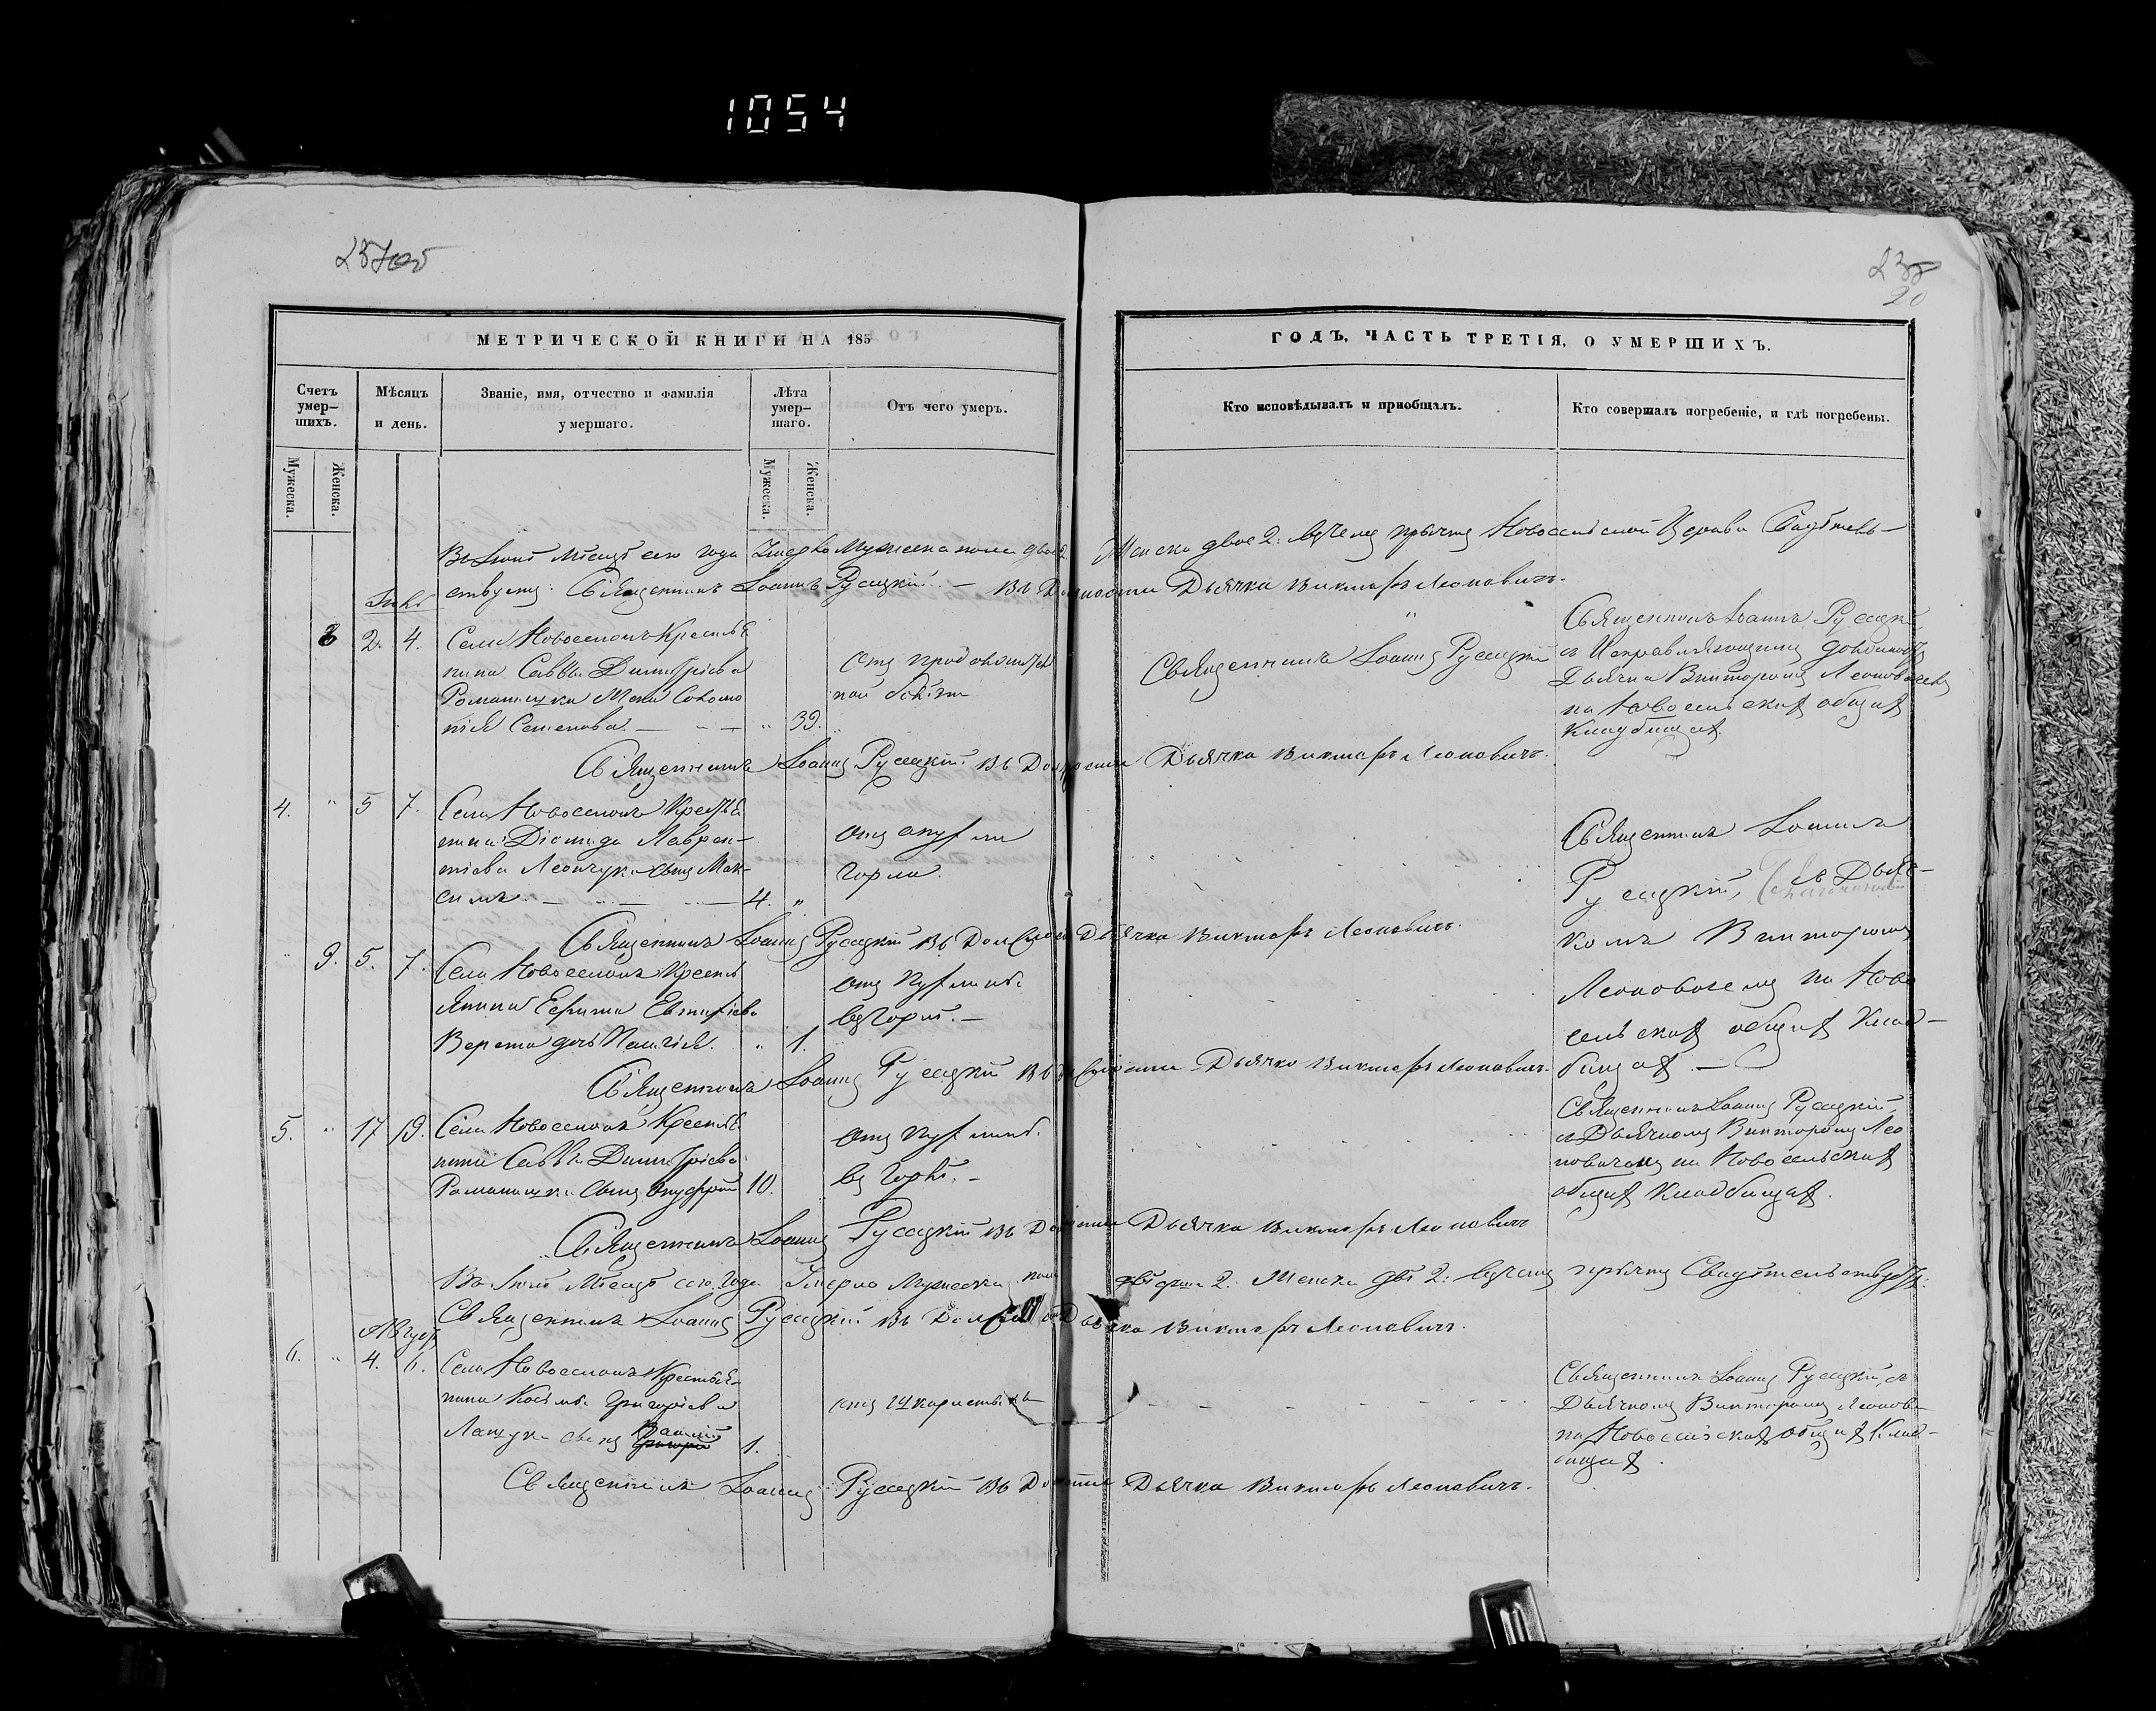 1054
257об
20
МЕТРИЧЕСКОЙ КНИГИ НА 185
ГОДЪ, ЧАСТЬ ТРЕТІЯ, О УМЕРШИХЪ.
Счетъ умер-
шихъ.
Мѣсяцъ
и день.
Званіе, имя, отчество и фамилія
умершаго.
Лѣта
умер-
шаго.
Отъ чего умеръ.
Кто исповѣдывалъ и пріобщалъ.
Кто совершалъ погребеніе, и гдѣ погребены.
Мужеска.
Женска.
Мужеска.
Женска.
Въ Іюнѣ мѣсяцѣ сего года Умерло Мужеска пола двое 2 Женска двое 2. въ чемъ причтъ Новосельской Церкви Свидѣтель-
ствуетъ. Священникъ Іоаннъ Русецкій. — Въ Должности Дьячка Викторъ Леоновичъ.
2. 4. Села Новоселокъ Крестья
нина Саввы Димитріева
Романчука Жена Соломо
нія Семенова. — 39.
отъ продолжитель
ной болѣзни
Священникъ Іоаннъ Русецкій
Священникъ Іоаннъ Русецкій
съ Исправляющимъ должность
Дьячка Викторомъ Леоновичемъ
на Новосельскихъ общихъ
Кладбищахъ
Священникъ Іоаннъ Русецкій. Въ Должности Дьячка Викторъ Леоновичъ.
4. " 5 7. Села Новоселокъ Крестья
нина Діомида Лаврен-
тіева Леончука сынъ Мак-
симъ. — 4. "
отъ опухли
горла.
Священникъ Іоаннъ
Русецкій, съ Дьяч-
комъ Викторомъ
Леоновичемъ на Ново
сельскихъ общихъ Клад-
бищахъ. —
Священникъ Іоаннъ Русецкій Въ Должности Дьячка Викторъ Леоновичъ.
" 9. 5. 7. Села Новоселокъ Кресть
янина Ефрема
Верета дочь " 1.
отъ
въ горлѣ. —
Священникъ Іоаннъ Русецкій Въ Должности Дьячка Викторъ Леоновичъ.
5. " 17 19. Села Новоселокъ Крестья
нина Саввы Димитріева
Романчука Сынъ Онуфрій 10.
отъ
въ горлѣ. —
Священникъ Іоаннъ Русецкій,
съ Дьячкомъ Викторомъ Лео
новичемъ на Новосельскихъ
общихъ Кладбищахъ.
Священникъ Іоаннъ Русецкій Въ Должности Дьячка Викторъ Леоновичъ
Въ Іюлѣ Мѣсяцѣ сего Года Умерло Мужеска пола 2. Женска двѣ 2: въ чемъ причтъ Свидѣтельствуетъ:
Священникъ Іоаннъ Русецкій Въ Должности Дьячка Викторъ Леоновичъ.
Августъ
6. " 4. 6. Села Новоселокъ Крестья-
нина Косьмы Григоріева
Лащука сынъ 1.
Священникъ Іоаннъ Русецкій съ
Дьячкомъ Викторомъ Леонов-
на Новосельскихъ общихъ Клад-
бищахъ.
Священникъ Іоаннъ Русецкій Въ Должности Дьячка Викторъ Леоновичъ.